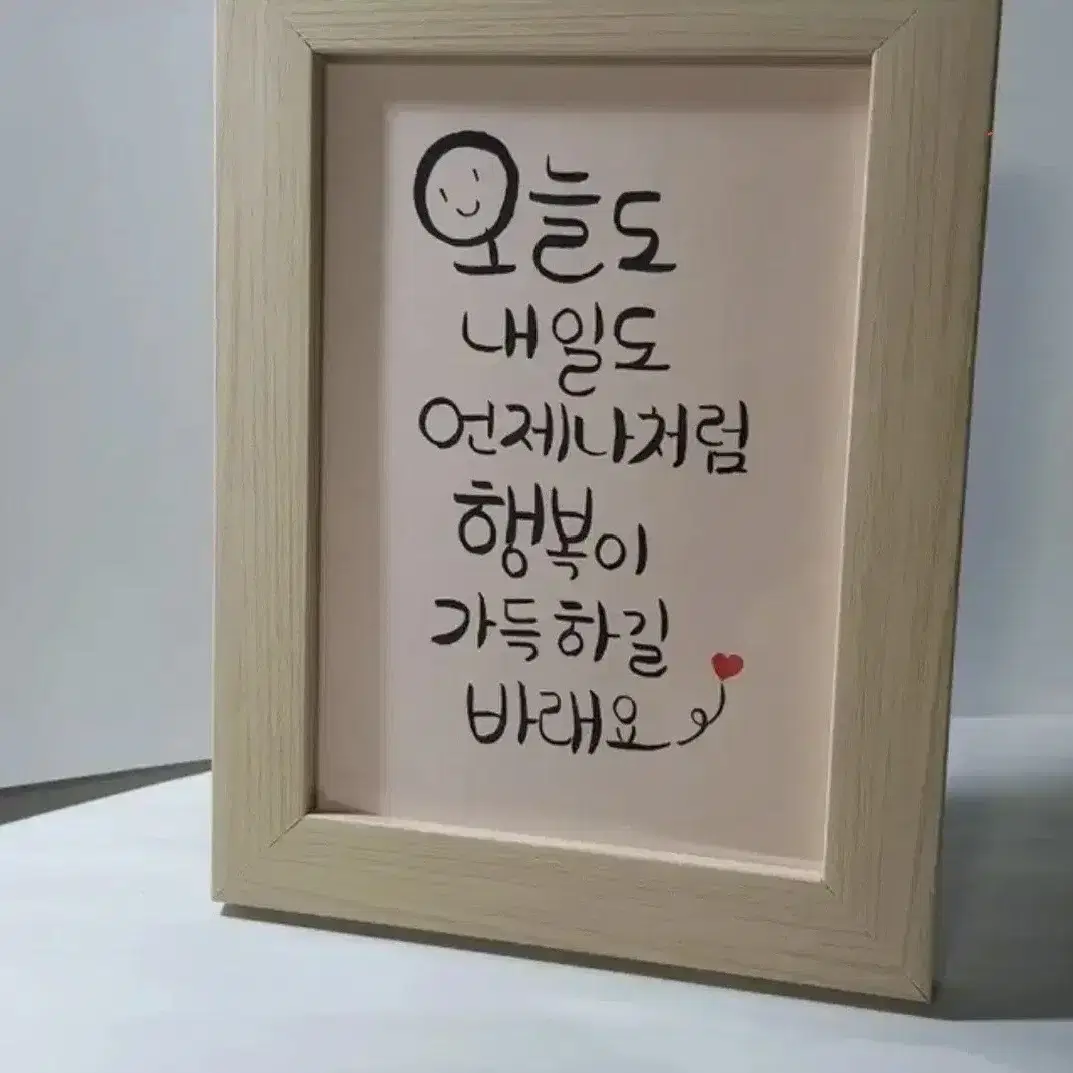 오늘도
내일도
언제나처럼
행복이
가득하길
바래요